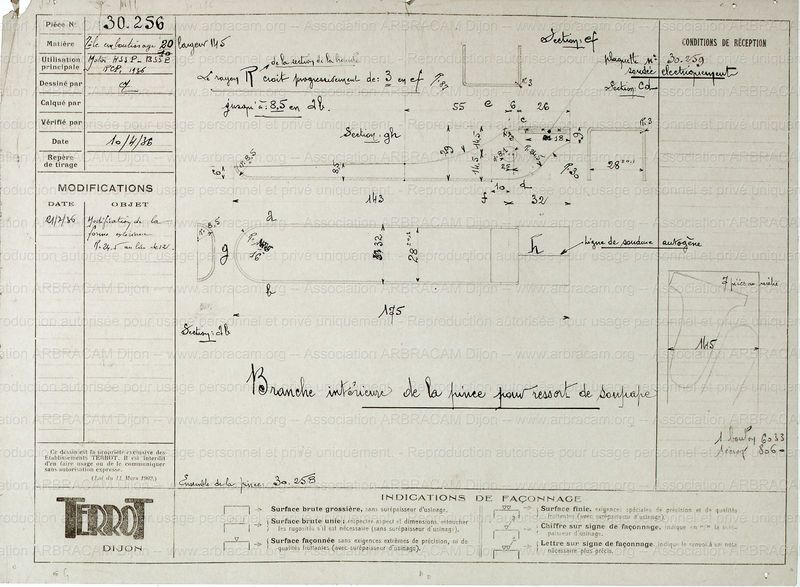 Pièce N° 30.256
Matière Tôle emboutissage 20/10 largeur 145
Utilisation principale Motos HSSP - BSSP
1936
Dessiné par
Calqué par
Vérifié par
Date 10/4/36
Repère de tirage
MODIFICATIONS
DATE OBJET
21/7/36 Modification de la
forme extérieure
au lieu de 12.
de la section de la branche
Le rayon R croit progressivement de: 3 en ef
jusqu'à: 8,5 en ab.
Section: ef
CONDITIONS DE RÉCEPTION
plaquette n° 30.259
soudée électriquement
Section: cd
R:3
55 e 6 26
Section: gh
R:3
18
28
143
f 32
10 d
a
g
32
28
h
Ligne de soudure autogène
b
175
Section: ab
7 pièces au mètre
145
Branche intérieure de la pince pour ressort de soupape
1 boulon 6033
1 écrou 806
Ensemble de la pince: 30.258
Ce dessin est la propriété exclusive des
Etablissements TERROT. Il est interdit
d'en faire usage ou de le communiquer
sans autorisation expresse.
(Loi du 11 Mars 1902.)
TERROT
DIJON
INDICATIONS DE FAÇONNAGE
Surface brute grossière, sans surépaisseur d'usinage.
Surface brute unie; respecter aspect et dimensions, retoucher
les rugosités s'il est nécessaire (sans surépaisseur d'usinage).
Surface façonnée sans exigences extrêmes de précision, ni de
qualités frottantes (avec surépaisseur d'usinage).
Surface finie, exigences spéciales de précision et de qualités
frottantes (avec surépaisseur d'usinage).
Chiffre sur signe de façonnage, indique en m/m la surépaisseur
d'usinage.
Lettre sur signe de façonnage, indique le renvoi à une note
nécessaire plus précis.
Reproduction autorisée pour usage personnel et privé uniquement. -- www.arbracam.org -- Association ARBRACAM Dijon